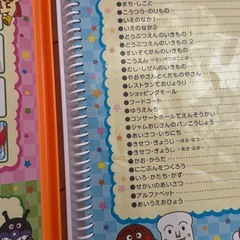 まち・しごと
こうつう・のりもの
いえのなか1
いえのなか2
どうぶつえんのいきもの 1
どうぶつえんのいきもの 2
すいぞくかんのいきもの
むし・しぜんのいきもの
やおやさんとくだものやさん
レストランでおりょうり
ショッピングモール
フードコート
ゆうえんち
コンサートホールでえんそうかい
ジャムおじさんのパンこうじょう
あいさつ・いちにち
きせつ・ぎょうじ
きせつ・ぎょうじ
かお・からだ
にこぷんをつくろう
せかいのあいさつ
アルファベット
あいうえおひょう